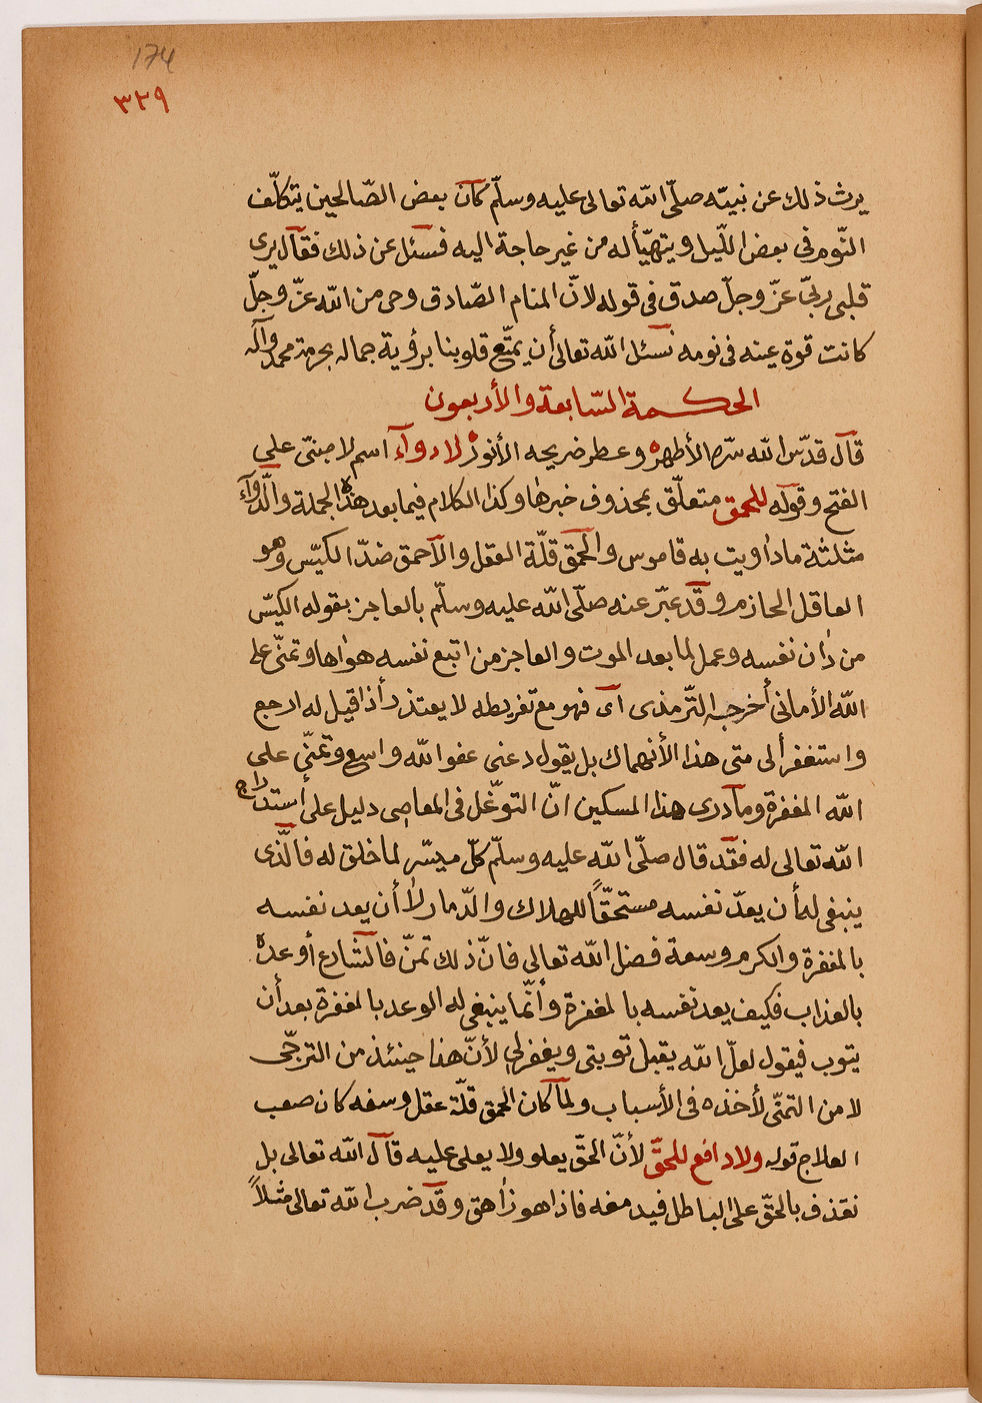 174
٣٢٩
يرث ذلك عن نبيّه صلّى الله تعالى عليه وسلّم كان بعض الصّالحين يتكلّف
النّوم فى بعض اللّيل ويتهيّأ له من غير حاجة اليه فسئل عن ذلك فقال يرى
قلبى ربىّ عزّ وجلّ صدق فى قوله لانّ المنام الصّادق وحى من الله عزّ وجلّ
كانت قوة عينه فى نومه نسئل الله تعالى أن يمتّع قلوبنا برؤية جماله بحرمة محمد وآله
الحكمة السّابعة والأربعون
قال قدّس الله سرّه الأطهره وعطر ضريحه الأنوره لا دوآء اسم لا مبنىّ على
الفتح وقوله للحمق متعلّق بمحذوف خبرها وكذا الكلام فيما بعد هذه الجملة والدّوآء
مثلثة ما داويت به قاموس والحمق قلّة العقل والآحمق ضدّ الكيّس وهو
العاقل الحازم وقد عبّر عنه صلّى الله عليه وسلّم بالعاجز بقوله الكيّس
من دان نفسه وعمل لما بعد الموت والعاجز من اتبع نفسه هواها وتمنّى على
الله الأمانى أخرجه التّرمذى اى فهو مع تفريطه لا يعتذر أذا قيل له ارجع
واستغفر ألى متى هذا الأنهماك بل يقول دعنى عفو الله واسع وتمنّى على
الله المغفرة وما درى هذا المسكين انّ التوغّل فى المعاصى دليل على أستدراج
الله تعالى له فقد قال صلّى الله عليه وسلّم كلّ ميسّر لما خلق له فالّذى
ينبغى له أن يعدّ نفسه مستحقّاً للهلاك والدّمار لا أن يعد نفسه
بالمغفرة والكرم وسعة فضل الله تعالى فانّ ذلك تمنّ فالشّارع أوعده
بالعذاب فكيف يعد نفسه بالمغفرة وأنّما ينبغى له الوعد بالمغفرة بعد أن
يتوب فيقول لعلّ الله يقبل توبتى ويغفر لى لأنّ هذا حينئذ من الترجّى
لا من التمنّى لأخذه فى الأسباب ولما كان الحمق قلّة عقل وسفه كان صعب
العلاج قوله ولا دافع للحقّ لأنّ الحقّ يعلو ولا يعلى عليه قال الله تعالى بل
نقذف بالحقّ على الباطل فيدمغه فاذا هو زاهق وقد ضرب الله تعالى مثلاً